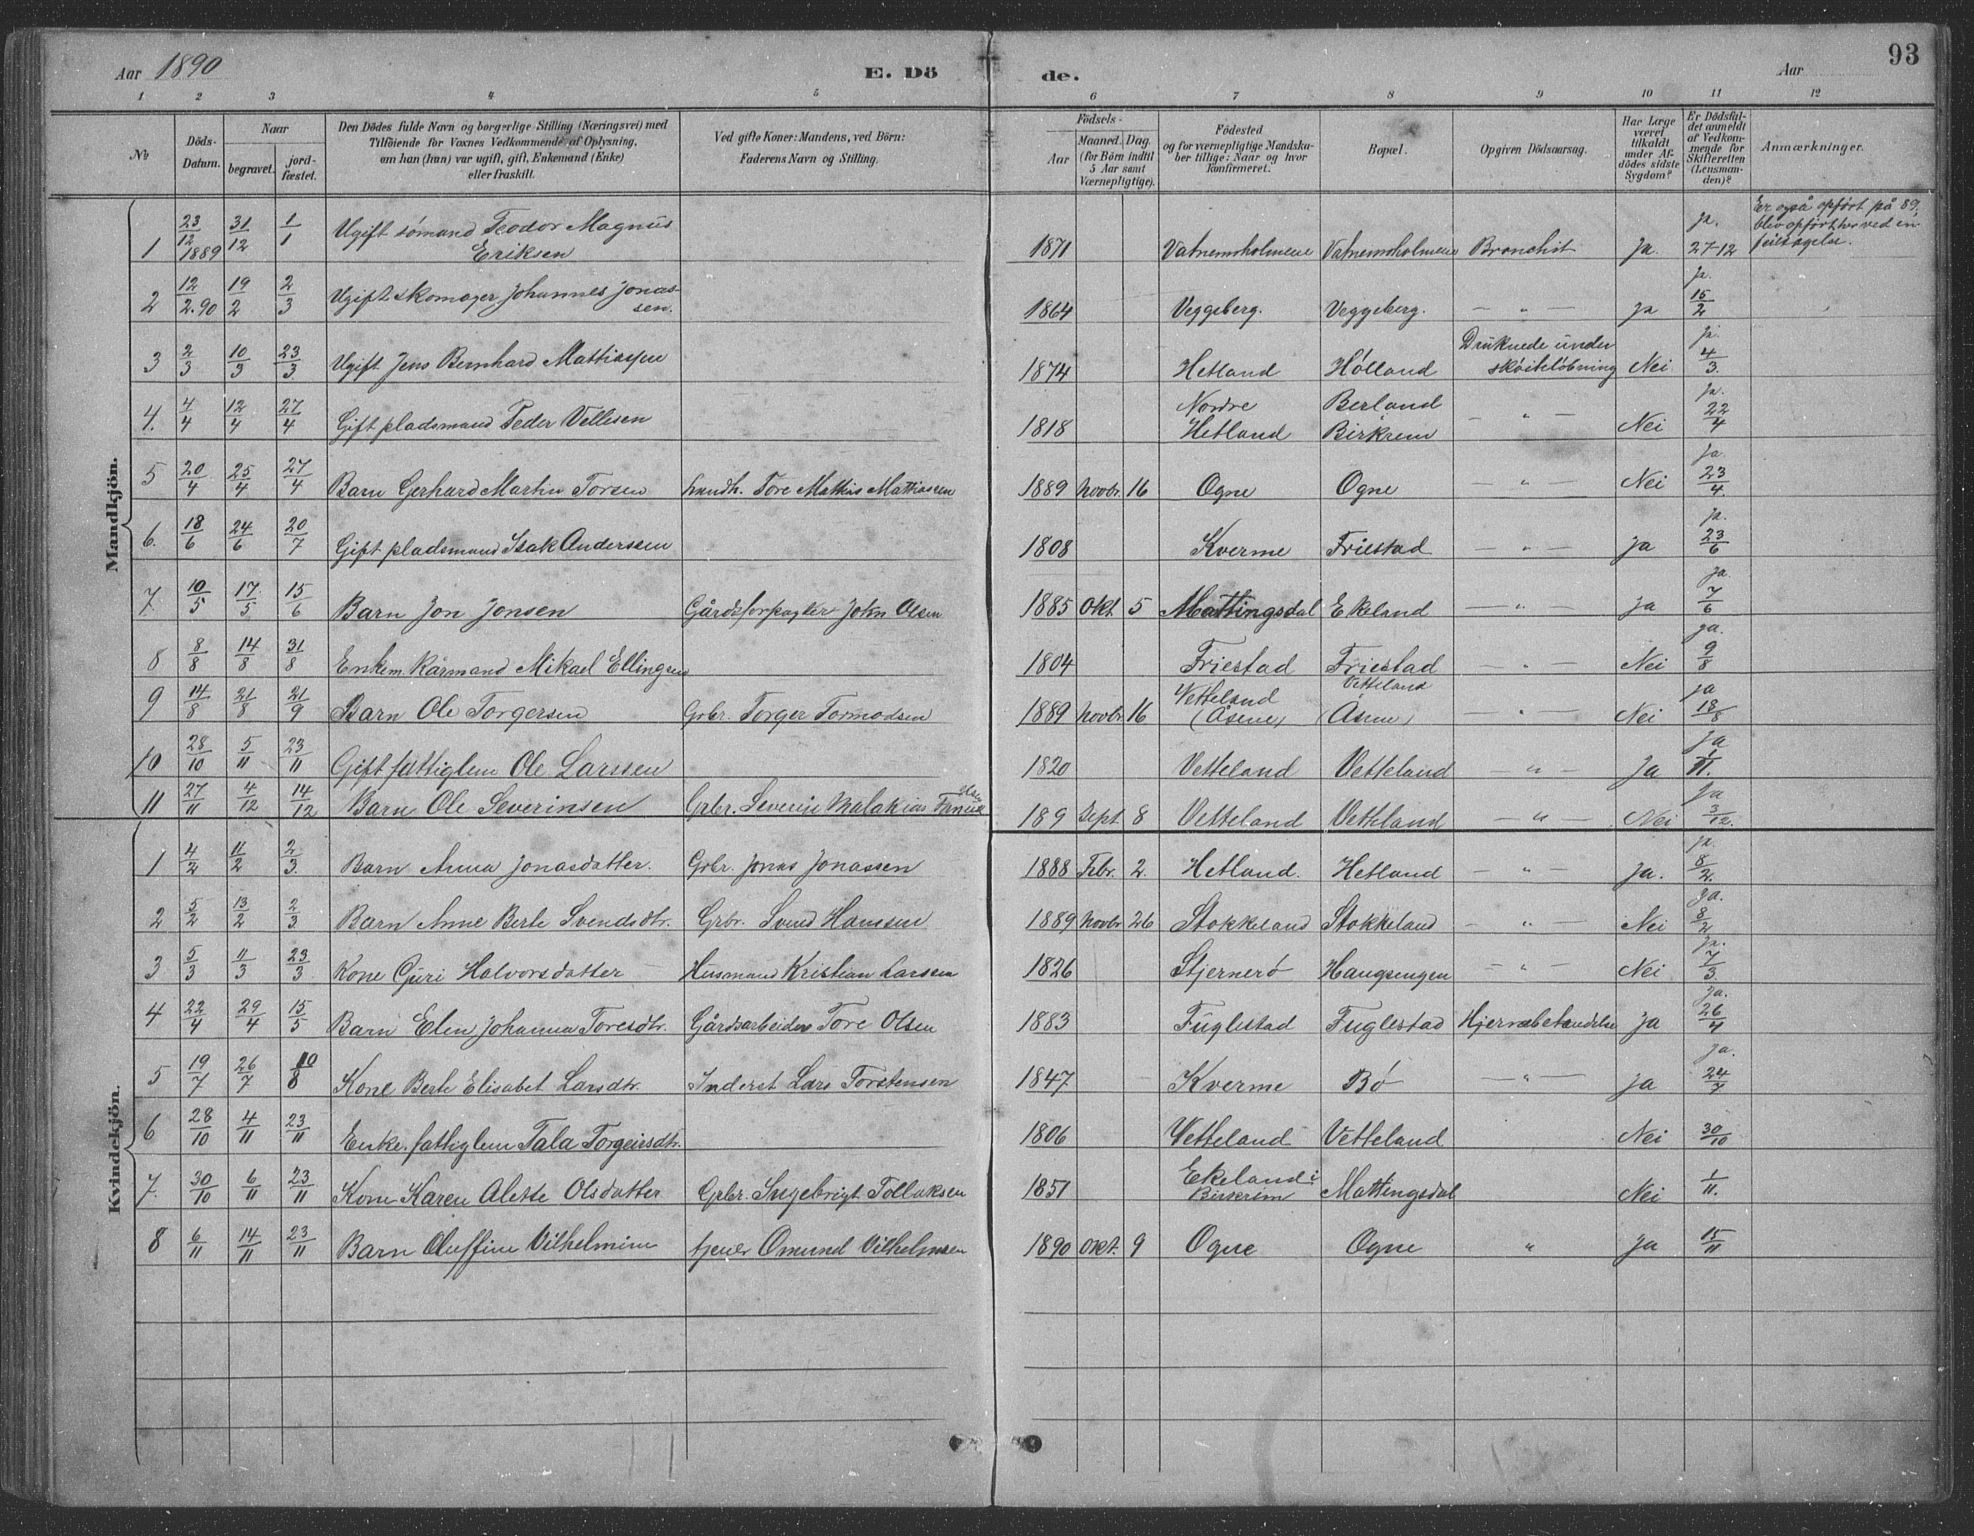 Aar 1890 E. Dö de. Aar 93
1 2 3 4 5 6 7 8 9 10 11 12
No Döds-Datum. Naar begravet. jordfæstet. Den Dödes fulde Navn og borgerlige Stilling (Næringsvei) med Tilföiende for Voxnes Vedkommende af Oplysning, om han (hun) var ugift, gift, Enkemand (Enke) eller fraskilt. Ved gifte Koner: Mandens, ved Börn: Faderens Navn og Stilling. Födsels- Aar Maaned. Dag. (for Börn indtil 5 Aar samt Værnepligtige). Födested og for værnepligtige Mandskaber tillige: Naar og hvor konfirmeret. Bopæl. Opgiven Dödsaarsag. Har Læge været tilkaldt under Afdödes sidste Sygdom? Er Dödsfaldet anmeldt af Vedkommende for Skifteretten (Lensmanden)? Anmærkninger.
Mandkjön.
1 23/12 1889 31/12 1/1 Ugift sømand Teodor Magnus Eriksen 1871 Vatnemsholmene Vatnemsholmene Bronchit Ja. ja. 27-12 Er også opført på 89, blev opført her ved en feiltagelse.
2 12/2.90 19/2 2/3 Ugift skomager Johannes Jonassen. 1864 Veggeberg. Veggeberg. — „ — ja ja. 15/2
3 2/3 10/3 23/3 Ugift Jens Bernhard Mattiassen 1874 Hetland Hølland Druknede under skøiteløbning Nei ja. 4/3.
4. 4/4 12/4 27/4 Gift pladsmand Peder Villesen 1818 Nordre Hetland Berland Birkrem — „ — Nei ja. 22/4
5 20/4 25/4 27/4 Barn Gerhard Martin Torsen Landh. Tore Mattias Mattiassen 1889 Novbr. 16 Ogne Ogne — „ — Nei Ja. 23/4.
6. 18/6 24/6 20/7 Gift pladsmand Isak Anderssen 1808 Kverme Friestad — „ — ja ja. 23/6
7. 10/5 17/5 15/6 Barn Jon Jonsen Gårdsforpagter John Olsen 1885 Okt. 5 Mattingsdal Ekeland — „ ja ja. 7/6
8 8/8 14/8 31/8 Enkem. Kårmand Mikael Ellingsen 1804 Friestad Friestad — „ — Nei ja. 9/8
9 14/8 21/8 21/9 Barn Ole Torgersen Grbr. Torger Tormodsen 1889 Novbr. 16 Vetteland (Åsene) Vetteland (Åsene) „ — Nei ja 18/8
10 28/10 5/11 23/11 Gift fattiglem Ole Larssen 1820 Vetteland Vetteland — „ — Ja ja 1/11.
11 27/11 4/12 14/12 Barn Ole Severinsen Grbr. Severin Malakias 189 Sept. 8 Vetteland Vetteland — „ — Nei Ja 3/12.
Kvindekjön.
1 4/2 11/2 2/3. Barn Anna Jonasdatter. Grbr. Jonas Jonassen 1888 Febr. 2. Hetland. Hetland — „ — Ja. ja. 8/2.
2 5/2 13/2 2/3 Barn Anne Berte Svendsdtr. Grbr. Svend Hanssen 1889 Novbr. 26 Stokkeland Stokkeland — „ — Nei Ja. 8/2
3 5/3 11/3 23/3 Kone Guri Halvorsdatter Husmand Kristian Larsen 1826 Stjernerø Haugsengen — „ — Nei Ja. 7/3.
4 22/4 29/4 15/5 Barn Elen Johanna Toresdtr. Gårdsarbeider Tore Olsen 1883 Fuglestad Fuglestad Hjernebetændelse ja Ja. 26/4
5 19/7 26/7 10/8 Kone Berte Elisabet Larsdtr. Inderst Lars Torstensen 1847 Kverme Bø — „ — ja Ja. 24/7
6 28/10 4/11 23/11 Enke. fattiglem Tala Torgeirsdtr. 1806 Vetteland Vetteland Nei 30/10
7. 30/10 6/11 23/11 Kone Karen Alette Olsdatter Grbr. Ingebrigt Tollaksen 1851 Ekeland i Birkrem Mattingsdal Nei 1/11.
8 6/11 14/11 23/11 Barn Oluffine Vilhelmine tjener Omund Vilhelmsen 1890 Okt. 9 Ogne Ogne „ Ja 15/11